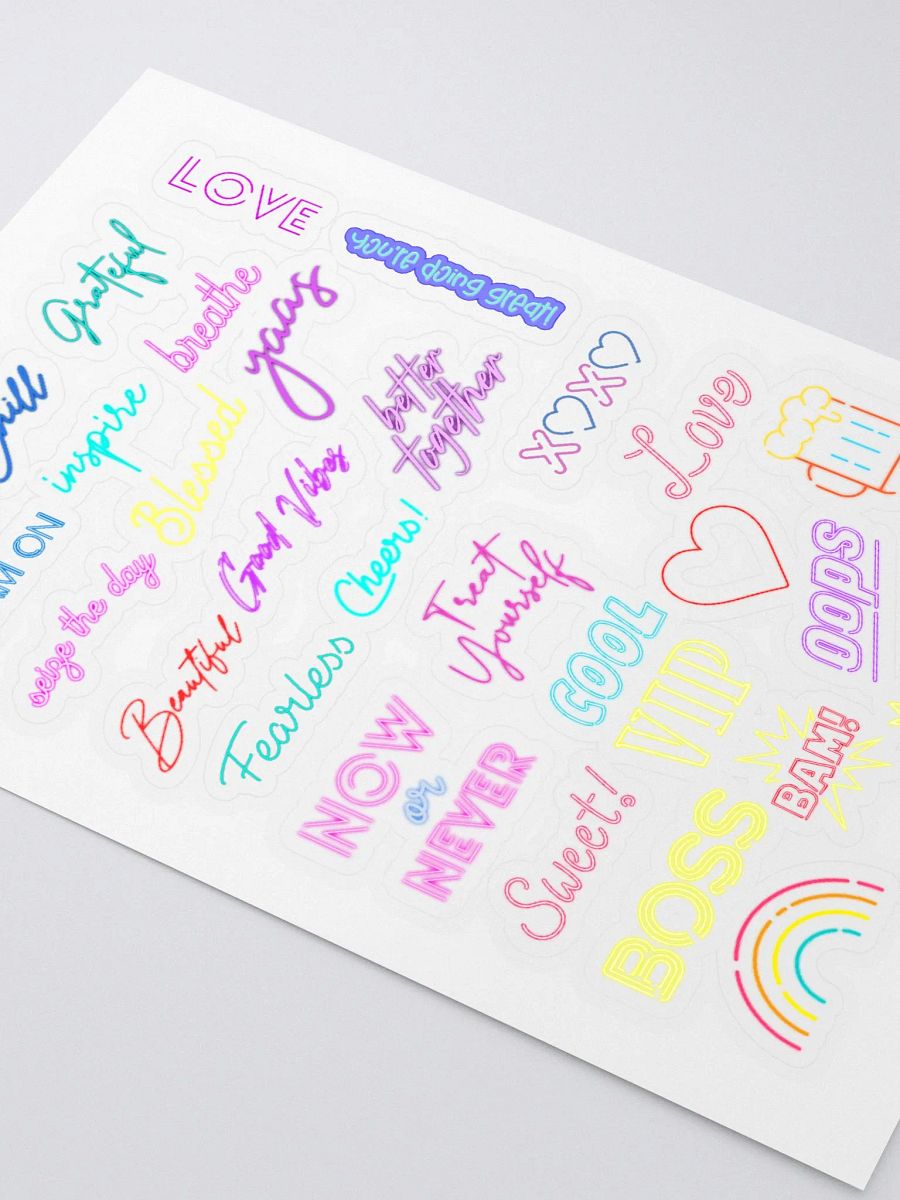 LOVE
you're doing great!
Grateful
breathe
yaas
better
together
XOXO
Love
Chill
inspire
Blessed
Good Vibes
Cheers!
Treat
Yourself
oops
M ON
seize the day
Beautiful
Fearless
COOL
VIP
BAM!
NOW
or
NEVER
Sweet!
BOSS